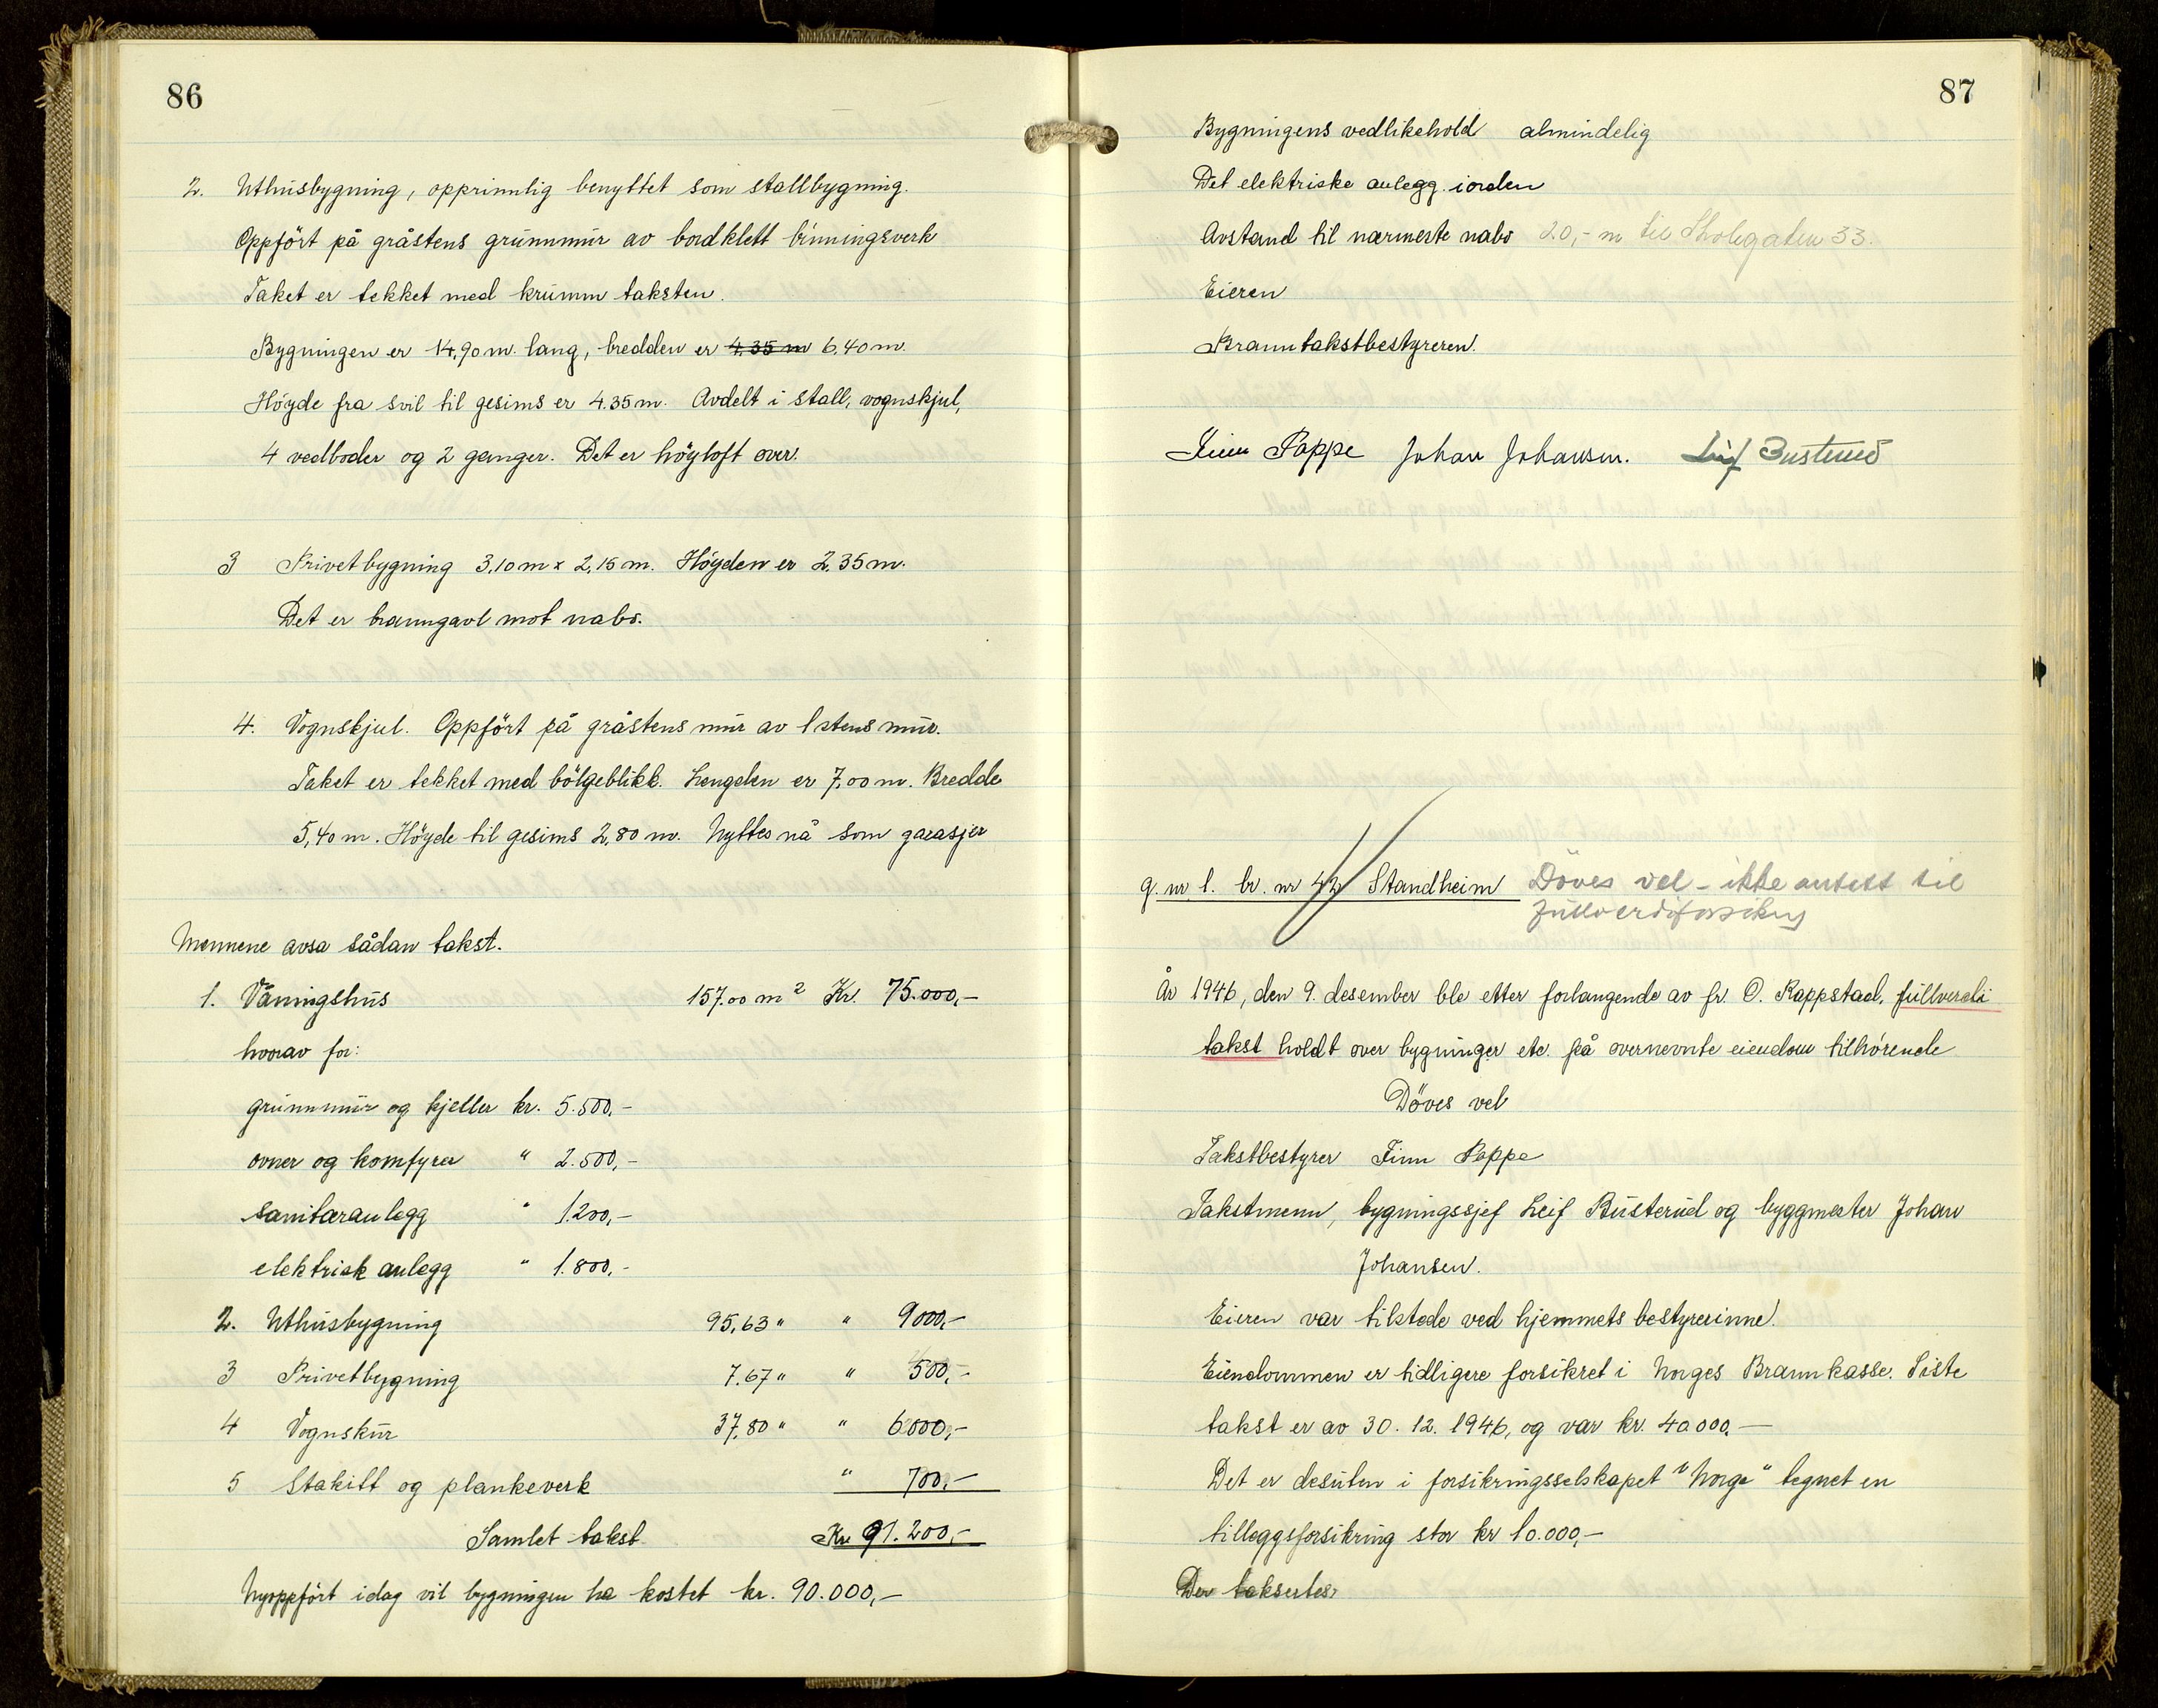 86
2. Uthusbygning, opprinnlig benyttet som stallbygning.
Oppført på gråstens grunnmur av bordklett binningsverk
Taket er tekket med krumm taksten.
Bygningen er 14,90 m. lang, bredden er 4.35 m 6,40 m.
Höyde fra svil til gesims er 4.35 m. Avdelt i stall, vognskjul,
4 vedboder og 2 ganger. Det er höyloft over.
3 Privetbygning 3,10 m x 2,15 m. Höyden er 2,35 m.
Det er branngavl mot nabo.
4. Vognskjul. Oppfört på gråstens mur av 1 stens mur.
Taket er tekket med bölgeblikk. Lengden er 7,00 m. Bredde
5,40 m. Höyde til gesims 2,80 m. Nyttes nå som garasjer
Mennene avsa sådan takst.
1. Våningshus 157.00 m² Kr. 75.000,-
hvorav for:
grunnmur og kjeller kr. 5.500,-
ovner og komfyrer " 2.500,-
sanitæranlegg " 1.200,-
elektrisk anlegg " 1.800,-
2. Uthusbygning 95,63 " " 9000,-
3 Privetbygning 7.67 " " 500,-
4 Vognskur 37,80 " " 6000,-
5 Stakitt og plankeverk " 700,-
Samlet takst Kr. 91.200,-
Nyoppfört idag vil bygningen ha kostet kr. 90.000,-
87
Bygningens vedlikehold almindelig
Det elektriske anlegg iorden
Avstand til nærmeste nabo 20,- m til Skolegaten 33.
Eieren
Branntakstbestyreren.
Finn Pappe Johan Johansen. Leif Busterud
g. nr. 1. br. nr 42 Standheim Döves vel - ikke antatt til
fullverdiforsikring
År 1946, den 9. desember ble etter forlangende av fr. O. Rappstad, fullverdi
takst holdt over bygninger etc. på overnevnte eiendom tilhörende
Döves vel
Takstbestyrer Finn Pappe
Takstmenn, bygningssjef Leif Busterud og byggmester Johan
Johansen.
Eieren var tilstede ved hjemmets bestyrerinne.
Eiendommen er tidligere forsikret i Norges Brannkasse. Siste
takst er av 30. 12. 1946, og var kr. 40000,-
Det er desuten i forsikringsselskapet "Norge" tegnet en
tilleggsforsikring stor kr 10.000,-
Der taksertes